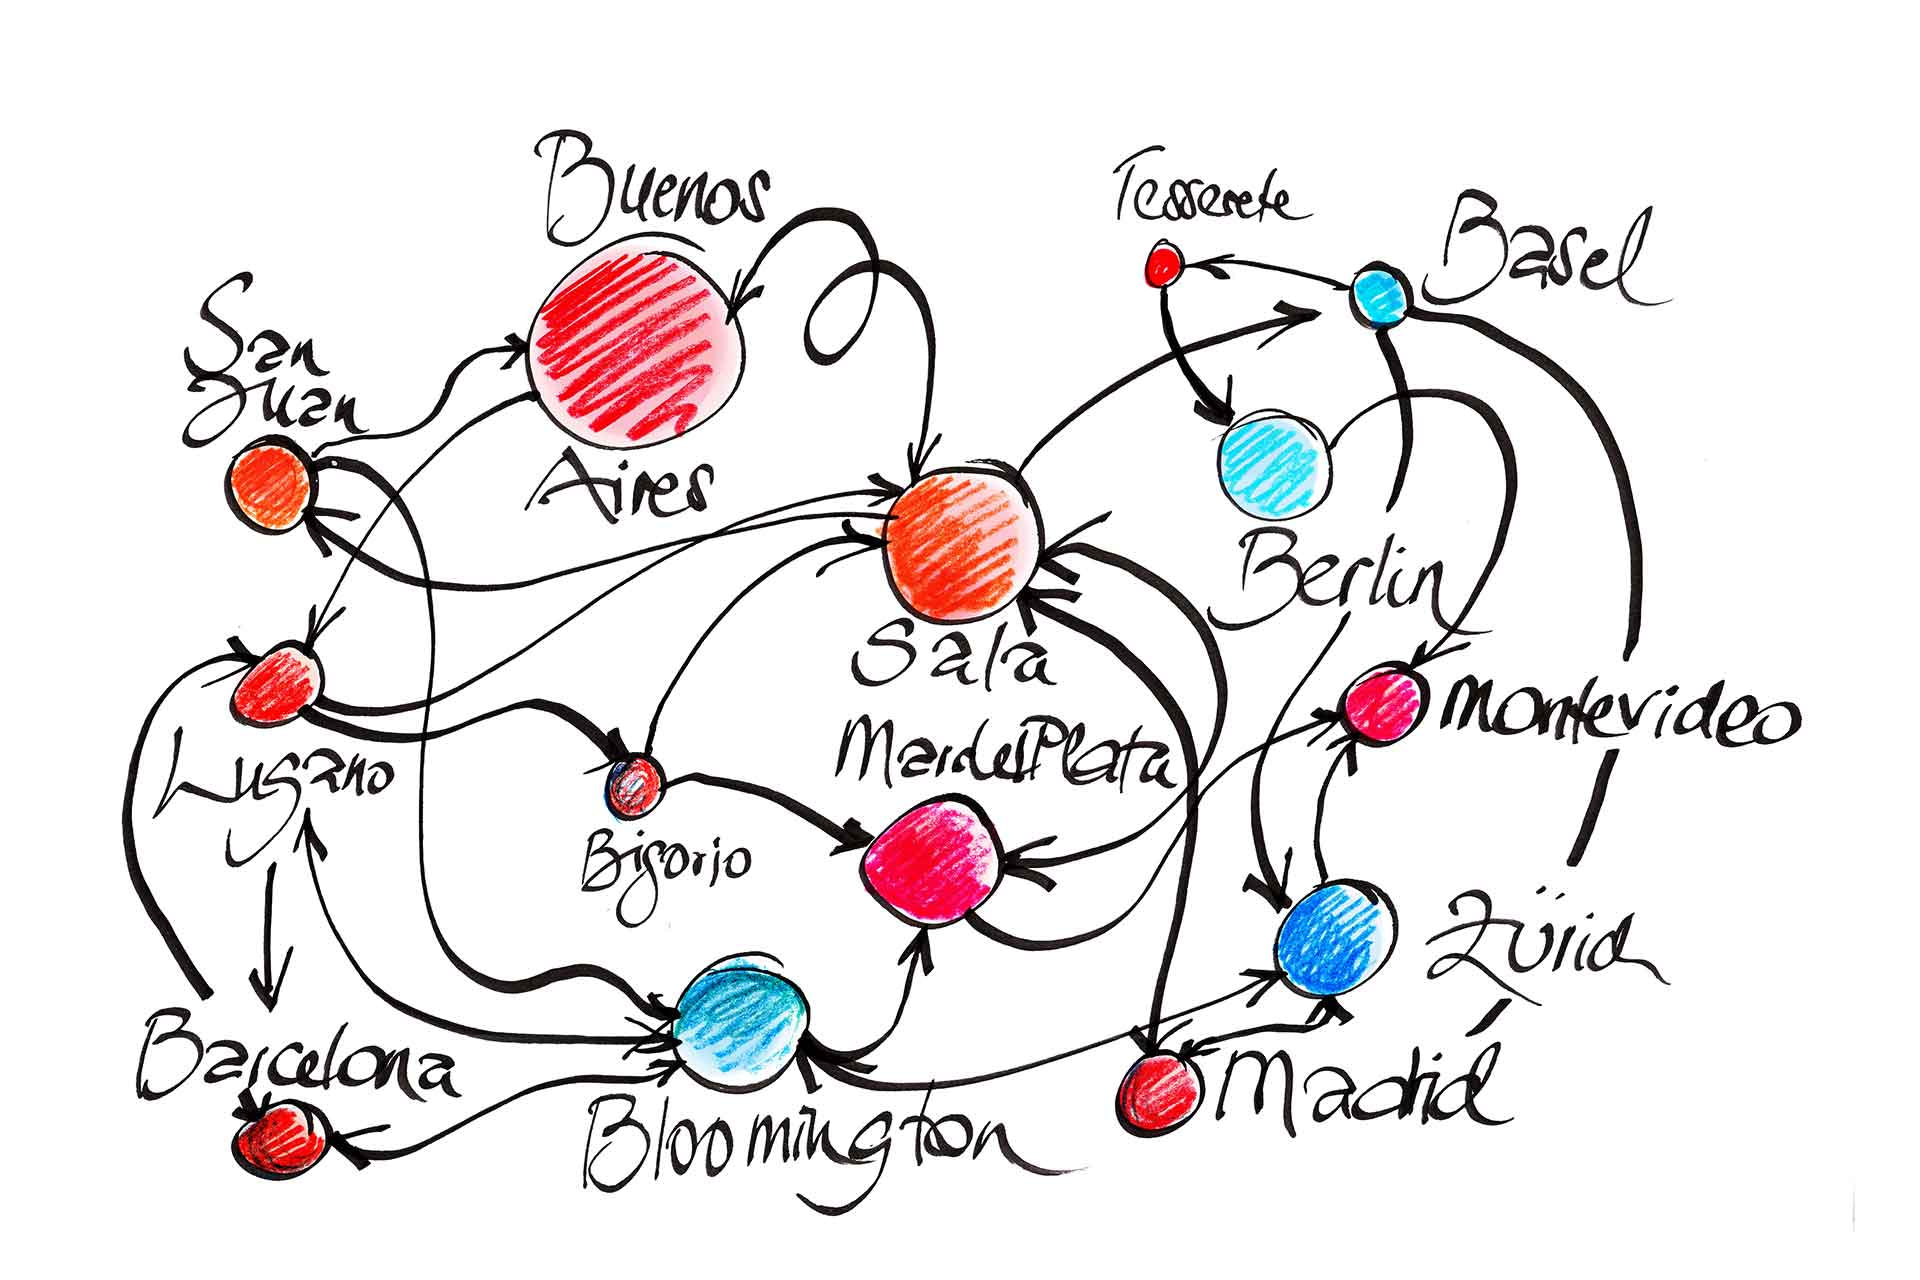 Buenos
Aires
Tesserete
Basel
San
Juan
Berlin
Sala
Mar del Plata
Montevideo
Lugano
Bigorio
Zürich
Barcelona
Madrid
Bloomington